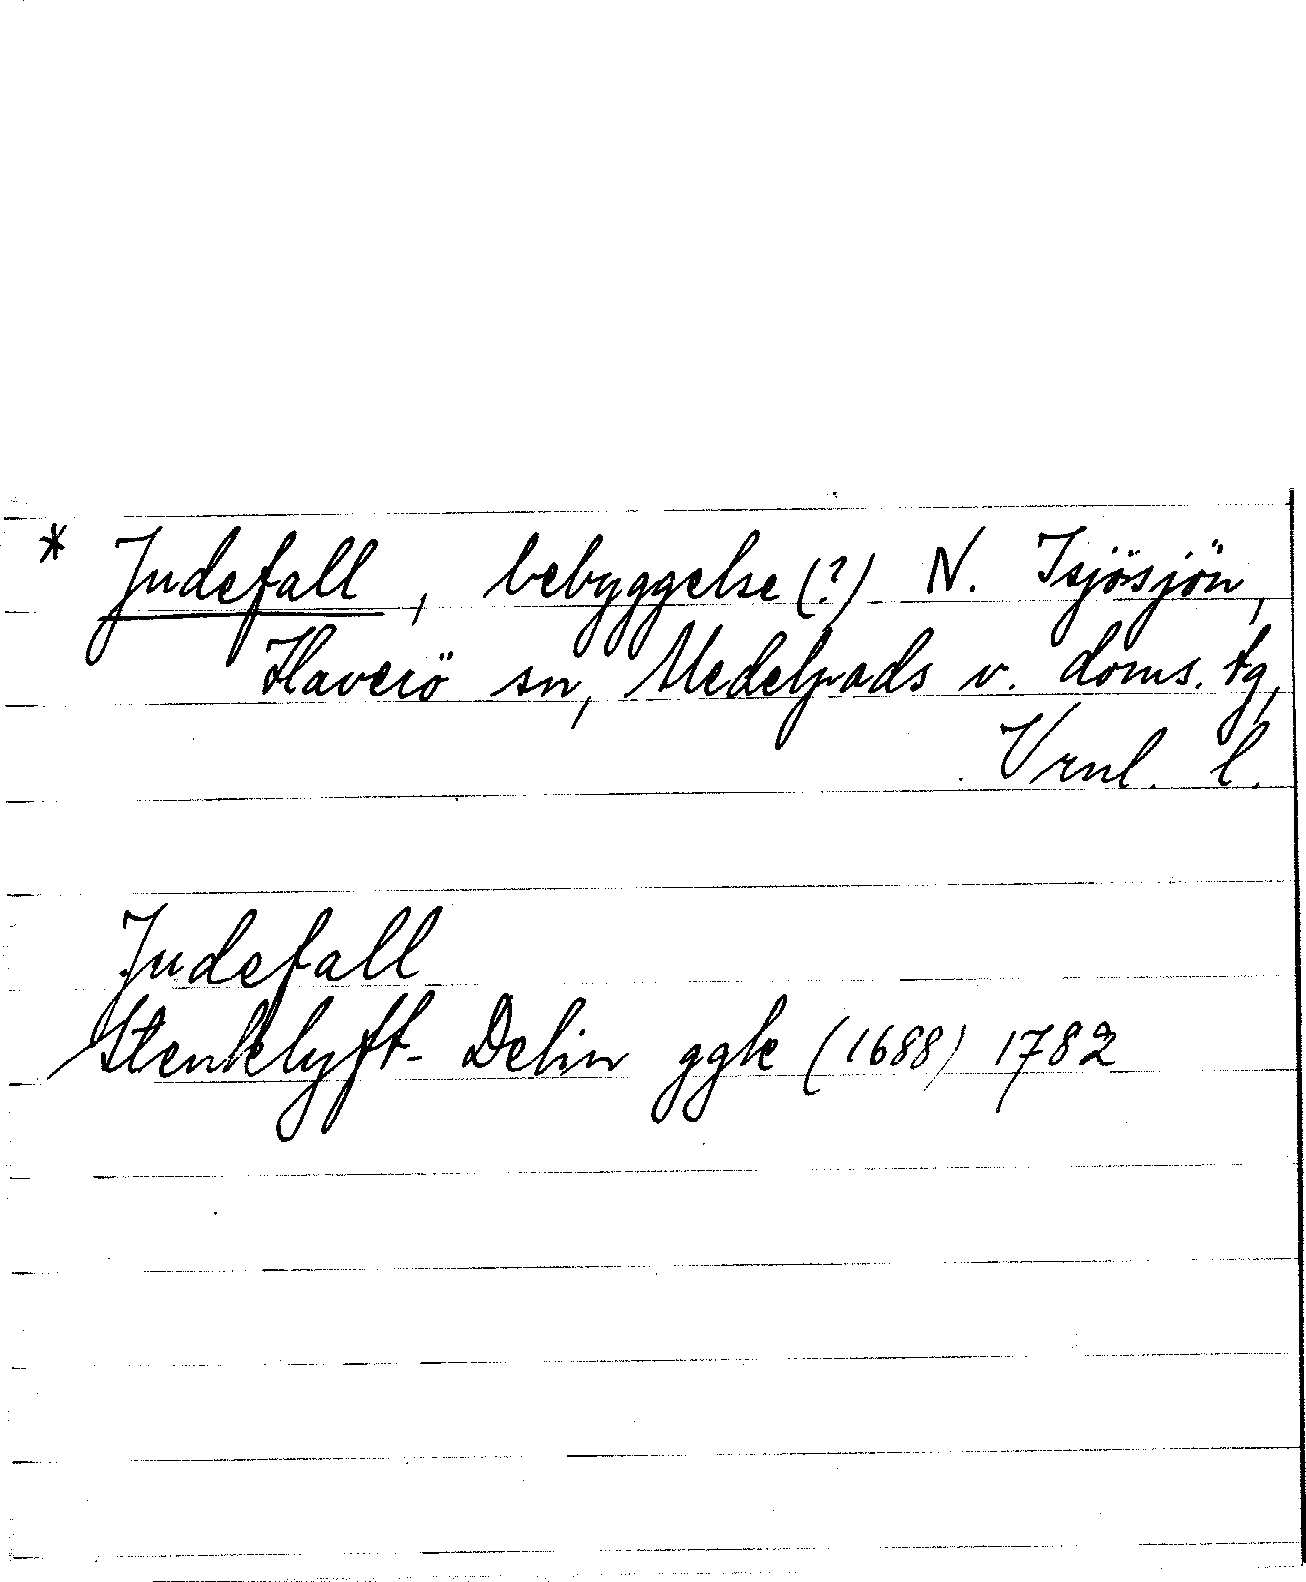 * Judefall, bebyggelse (?) N. Isjösjön,
Haverö sn, Medelpads v. doms. tg,
Vrnl. l.
Judefall
Stenklyft- Delin ggk (1688) 1782